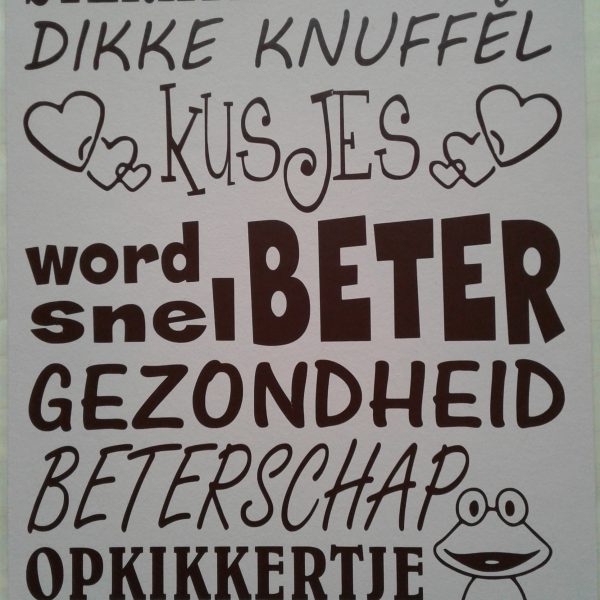 DIKKE KNUFFEL
KUSJES
word
snel BETER
GEZONDHEID
BETERSCHAP
OPKIKKERTJE